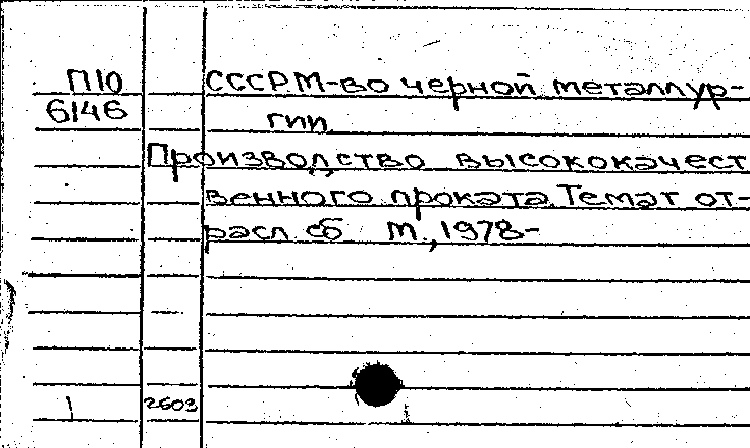 П10 СССР М-во черной металлур-
6146 гии
Производство высококачест
венного проката. Темат от-
расл. сб. М., 1978-
1 2603